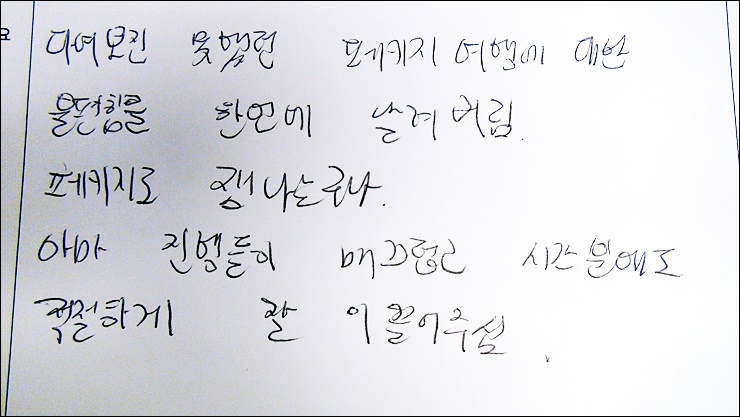 다여보진 못했던 페키지 여행에 대한
불편함을 한번에 날려버림.
페키지도 잼나는구나.
아마 진행들이 매끄럽고 시간분에도
적절하게 잘 이끌어주심.